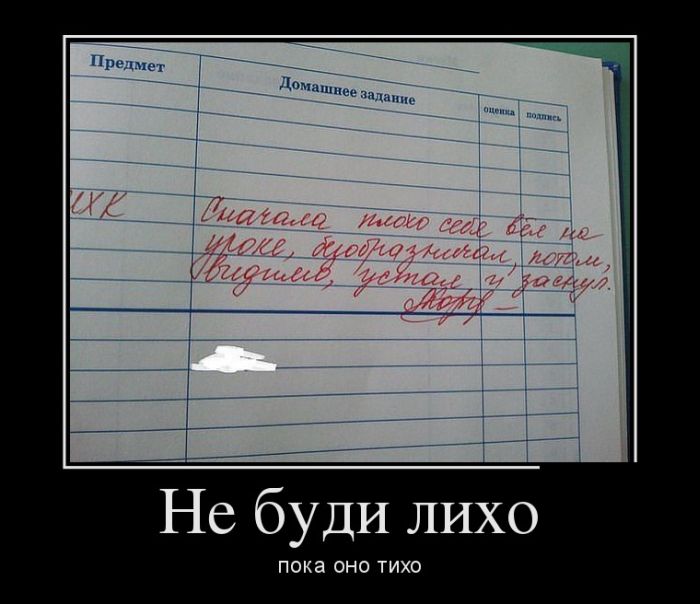 Предмет
Домашнее задание
оценка
подпись
МХК
Сначала плохо себя вёл на
уроке, безобразничал, потом,
видимо, устал и заснул.
Не буди лихо
пока оно тихо